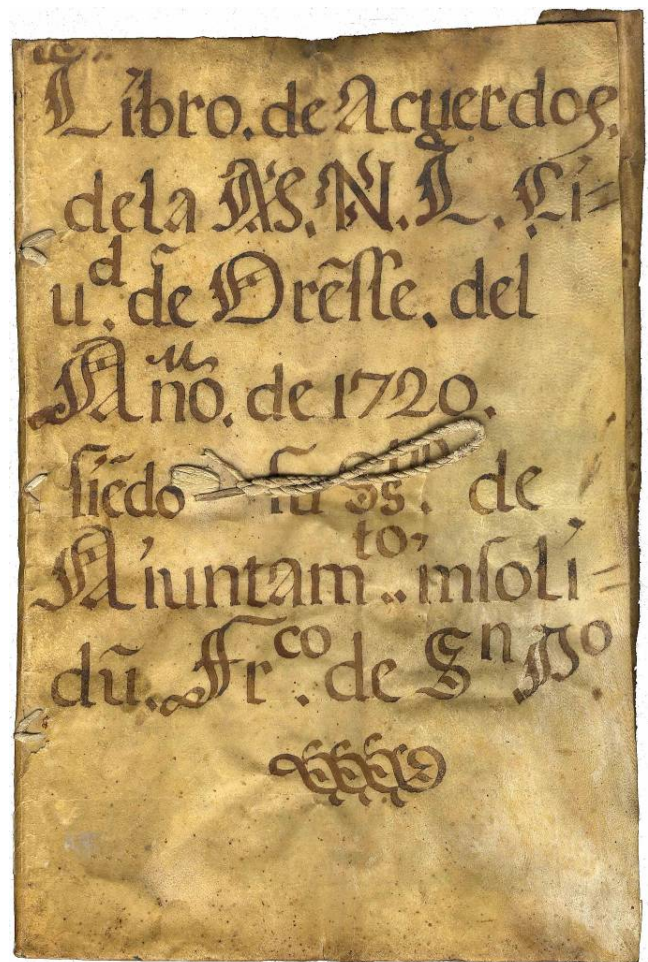 Libro. de Acuerdos.
dela M. N. L. Ci=
u.d dē Orēſſe. del
Año. de 1720.
ſiēdo ſu de
Aiuntam.to inſoli=
dū. Fr.co de Sn Po